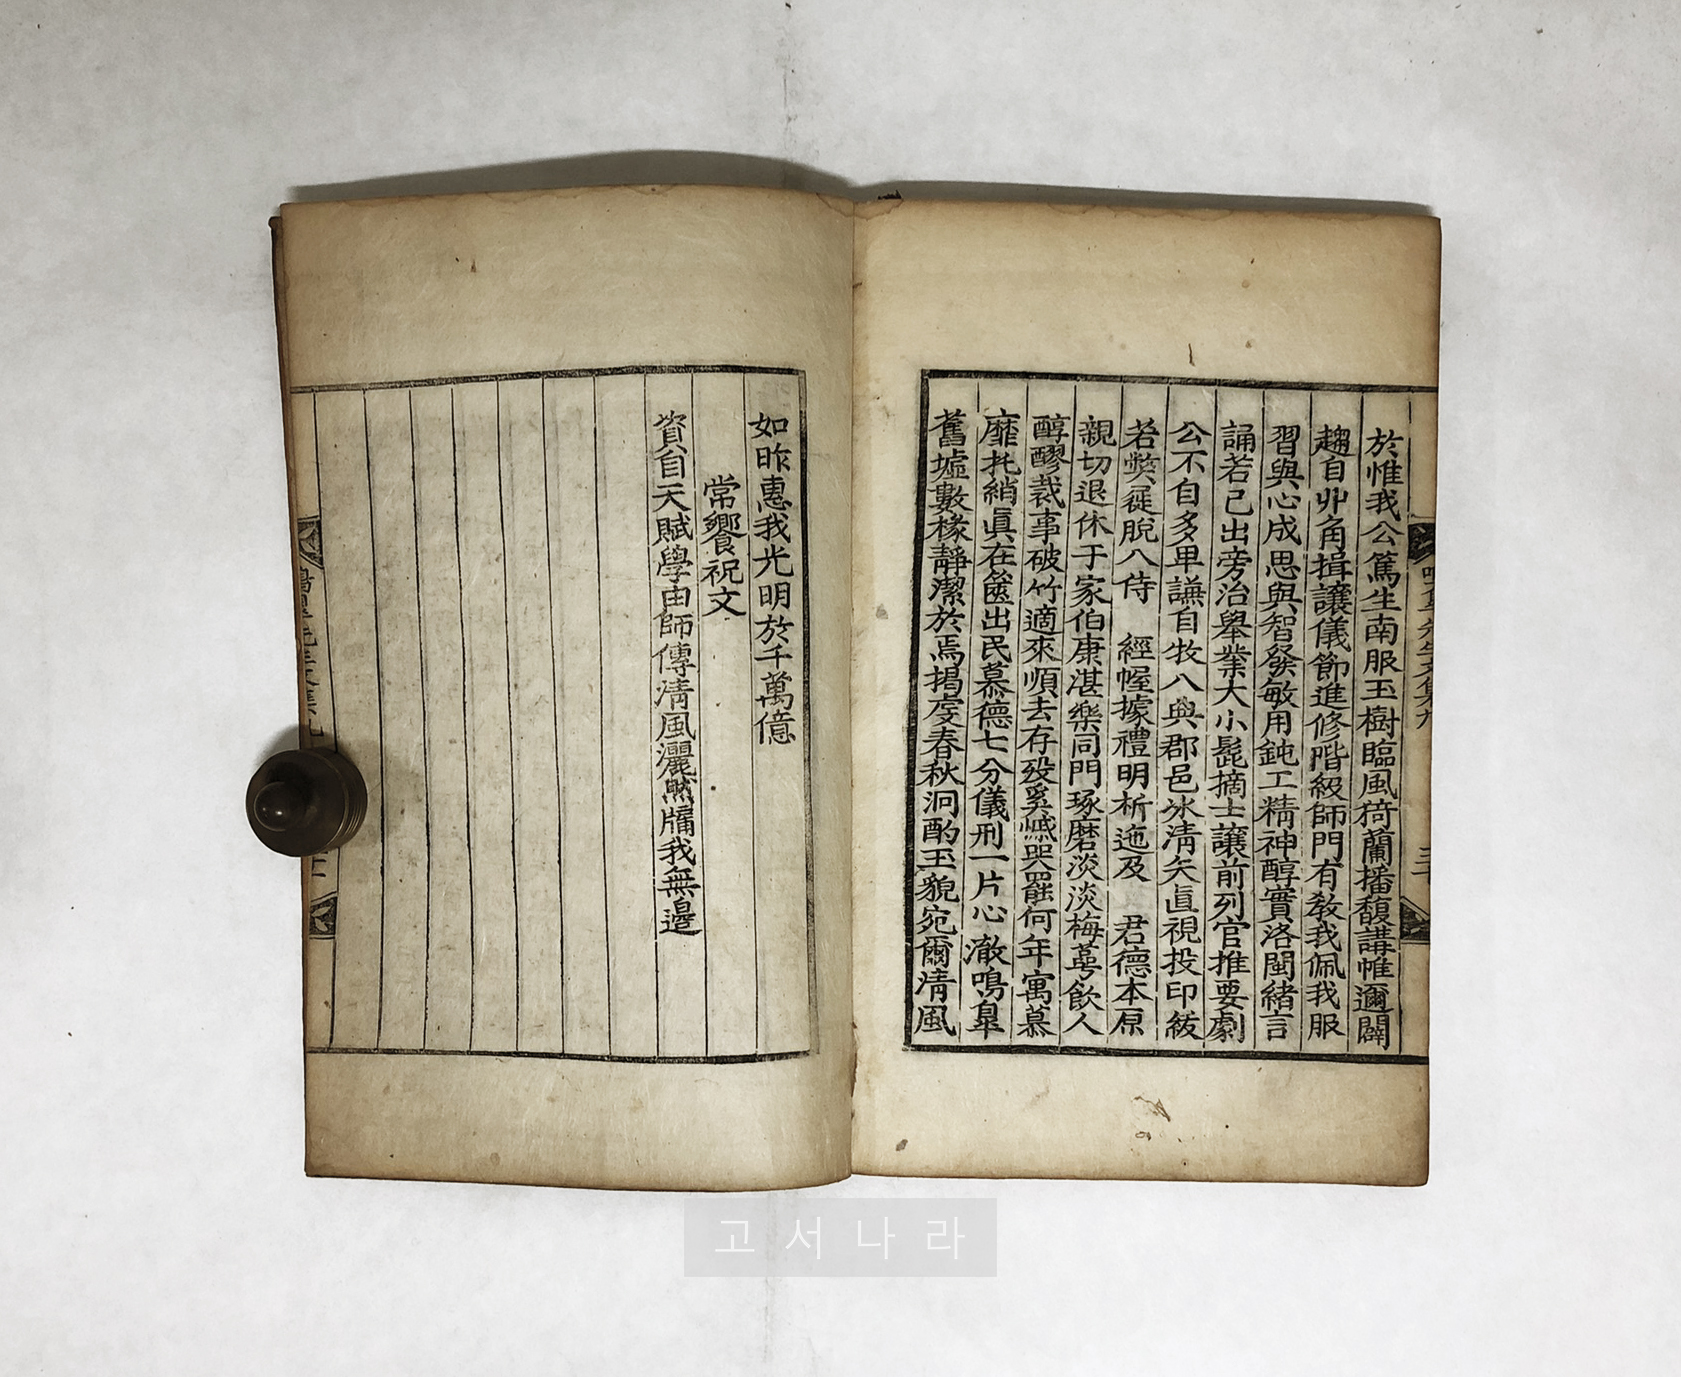 於惟我公篤生南服玉樹臨風猗蘭播馥講帷邇闢
趨自丱角揖讓儀節進修階級師門有教我佩我服
習與心成思與智發敏用鈍工精神醇實洛閩緒言
誦若己出旁治舉業大小髭摘士讓前列官推要劇
公不自多卑謙自牧八典郡邑氷清矢直視投印紱
若弊屣脫八侍 經幄據禮明析迤及 君德本原
親切退休于家伯康湛樂同門琢磨淡淡梅萼飲人
醇醪裁事破竹適來順去存歿奚慽哭罷何年寓慕
靡托綃眞在篋出民慕德七分儀刑一片心澈鳴皐
舊墟數椽靜潔於焉揭虔春秋泂酌玉貌宛爾淸風
如昨惠我光明於千萬億
常饗祝文
資自天賦學由師傳淸風灑然牖我無邊
高 서 나 라